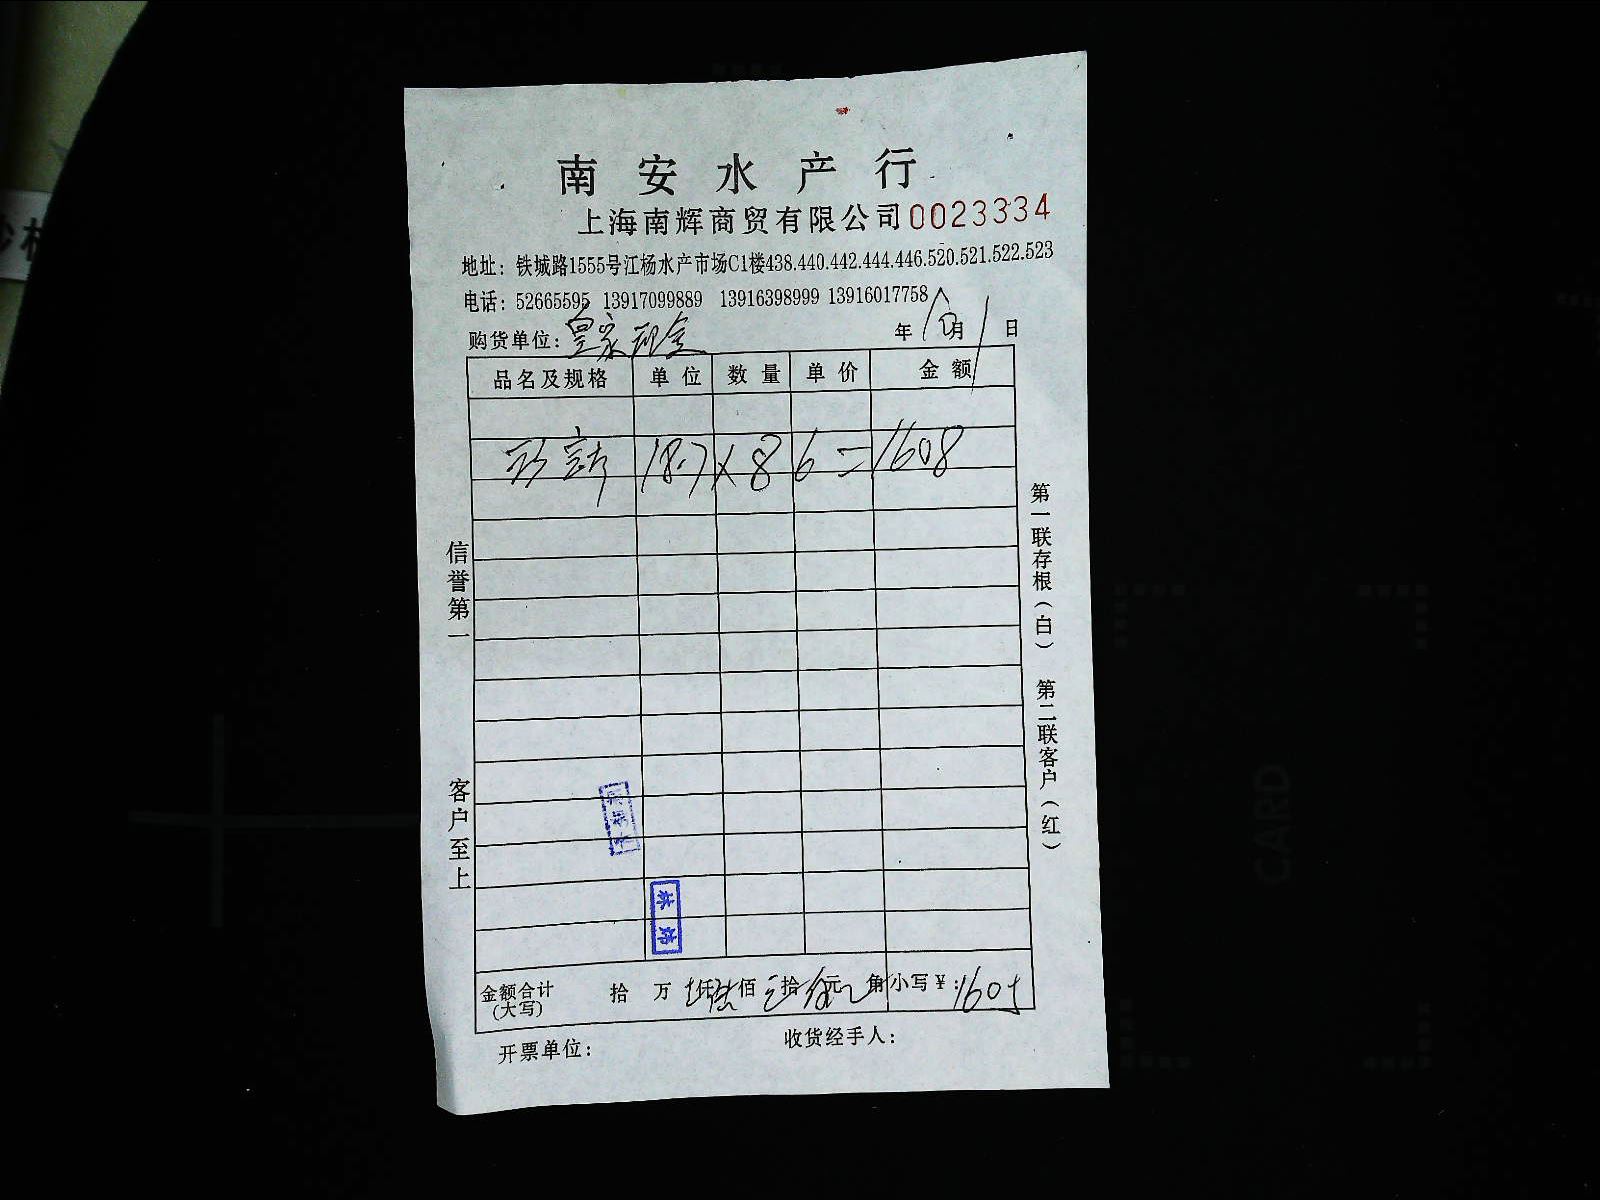 南安水产行
上海南辉商贸有限公司 0023334
地址：铁城路1555号江杨水产市场C1楼438.440.442.444.446.520.521.522.523
电话：52665595 13917099889 13916398999 13916017758
购货单位：皇家 年 10月 1 日
品名及规格 单位 数量 单价 金额
18.7 × 86 = 1608
信誉第一 客户至上
第一联存根（白） 第二联客户（红）
金额合计(大写) 拾 万 仟 佰 拾 元 角 小写￥：1605
开票单位： 收货经手人：
CARD